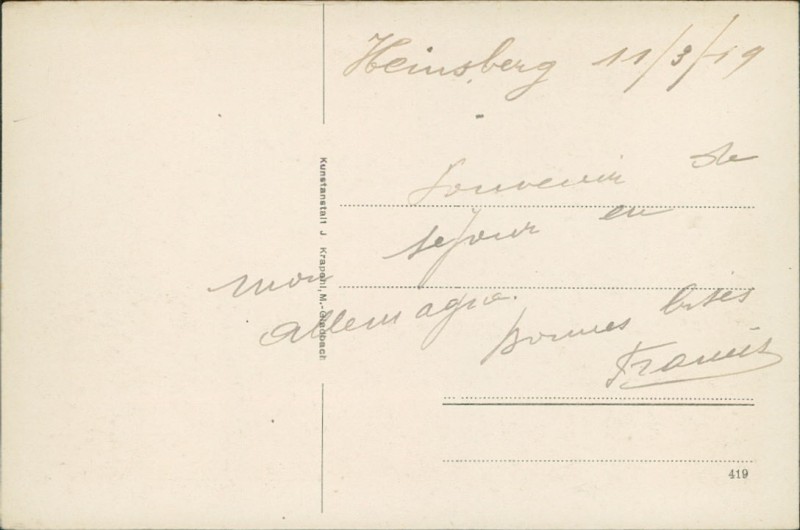 Heinsberg 11/3/19
Souvenir de
mon séjour en
Allemagne.
Bonnes bises
Francis
Kunstanstalt J. Krapohl, M.-Gladbach
419